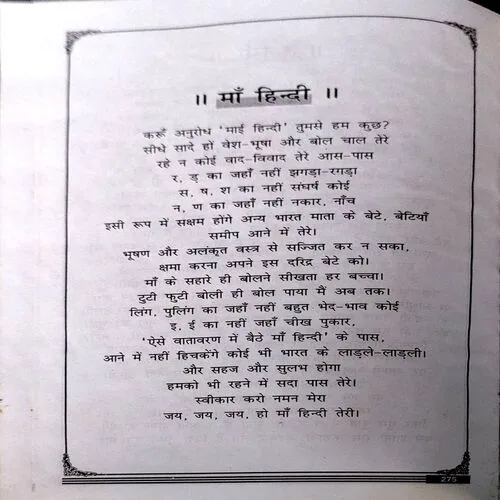 ॥ माँ हिन्दी ॥
करूँ अनुरोध 'माई हिन्दी' तुमसे हम कुछ?
सीधे सादे हों वेश-भूषा और बोल चाल तेरे
रहे न कोई वाद-विवाद तेरे आस-पास
र, ड़ का जहाँ नहीं झगड़ा-रगड़ा
स, ष, श का नहीं संघर्ष कोई
न, ण का जहाँ नहीं नकार, नाँच
इसी रूप में सक्षम होंगे अन्य भारत माता के बेटे, बेटियाँ
समीप आने में तेरे।
भूषण और अलंकृत वस्त्र से सज्जित कर न सका,
क्षमा करना अपने इस दरिद्र बेटे को।
माँ के सहारे ही बोलने सीखता हर बच्चा।
टुटी फुटी बोली ही बोल पाया मैं अब तक।
लिंग, पुलिंग का जहाँ नहीं बहुत भेद-भाव कोई
इ, ई का नहीं जहाँ चीख पुकार,
'ऐसे वातावरण में बैठे माँ हिन्दी' के पास,
आने में नहीं हिचकेंगे कोई भी भारत के लाड़ले-लाड़ली।
और सहज और सुलभ होगा
हमको भी रहने में सदा पास तेरे।
स्वीकार करो नमन मेरा
जय, जय, जय, हो माँ हिन्दी तेरी।
275